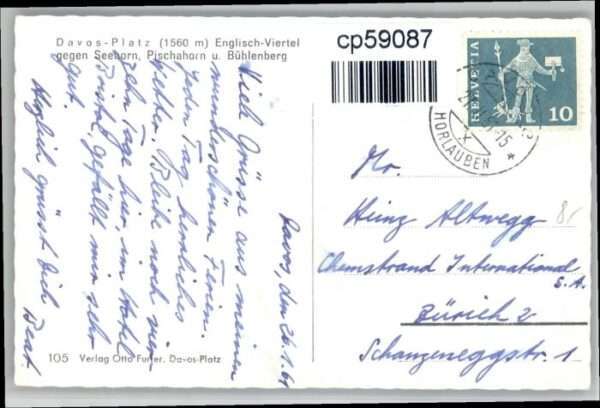 Davos-Platz (1560 m) Englisch-Viertel
gegen Seehorn, Pischahorn u. Bühlenberg
cp59087
HELVETIA
10
HORLAUBEN
Davos, den 26.1.61
Viele Grüsse aus meinen
wunderschönen Ferien.
Jeden Tag herrliches
Wetter. Bleibe noch vier-
zehn Tage hier, im Hotel
Bristol, gefällt mir sehr
gut.
Herzlich grüsst Dich
Beat
Mr.
Heinz Altwegg
Chemstrand International
S.A.
Zürich 2
Schanzeneggstr. 1
105 Verlag Otto Furter, Davos-Platz